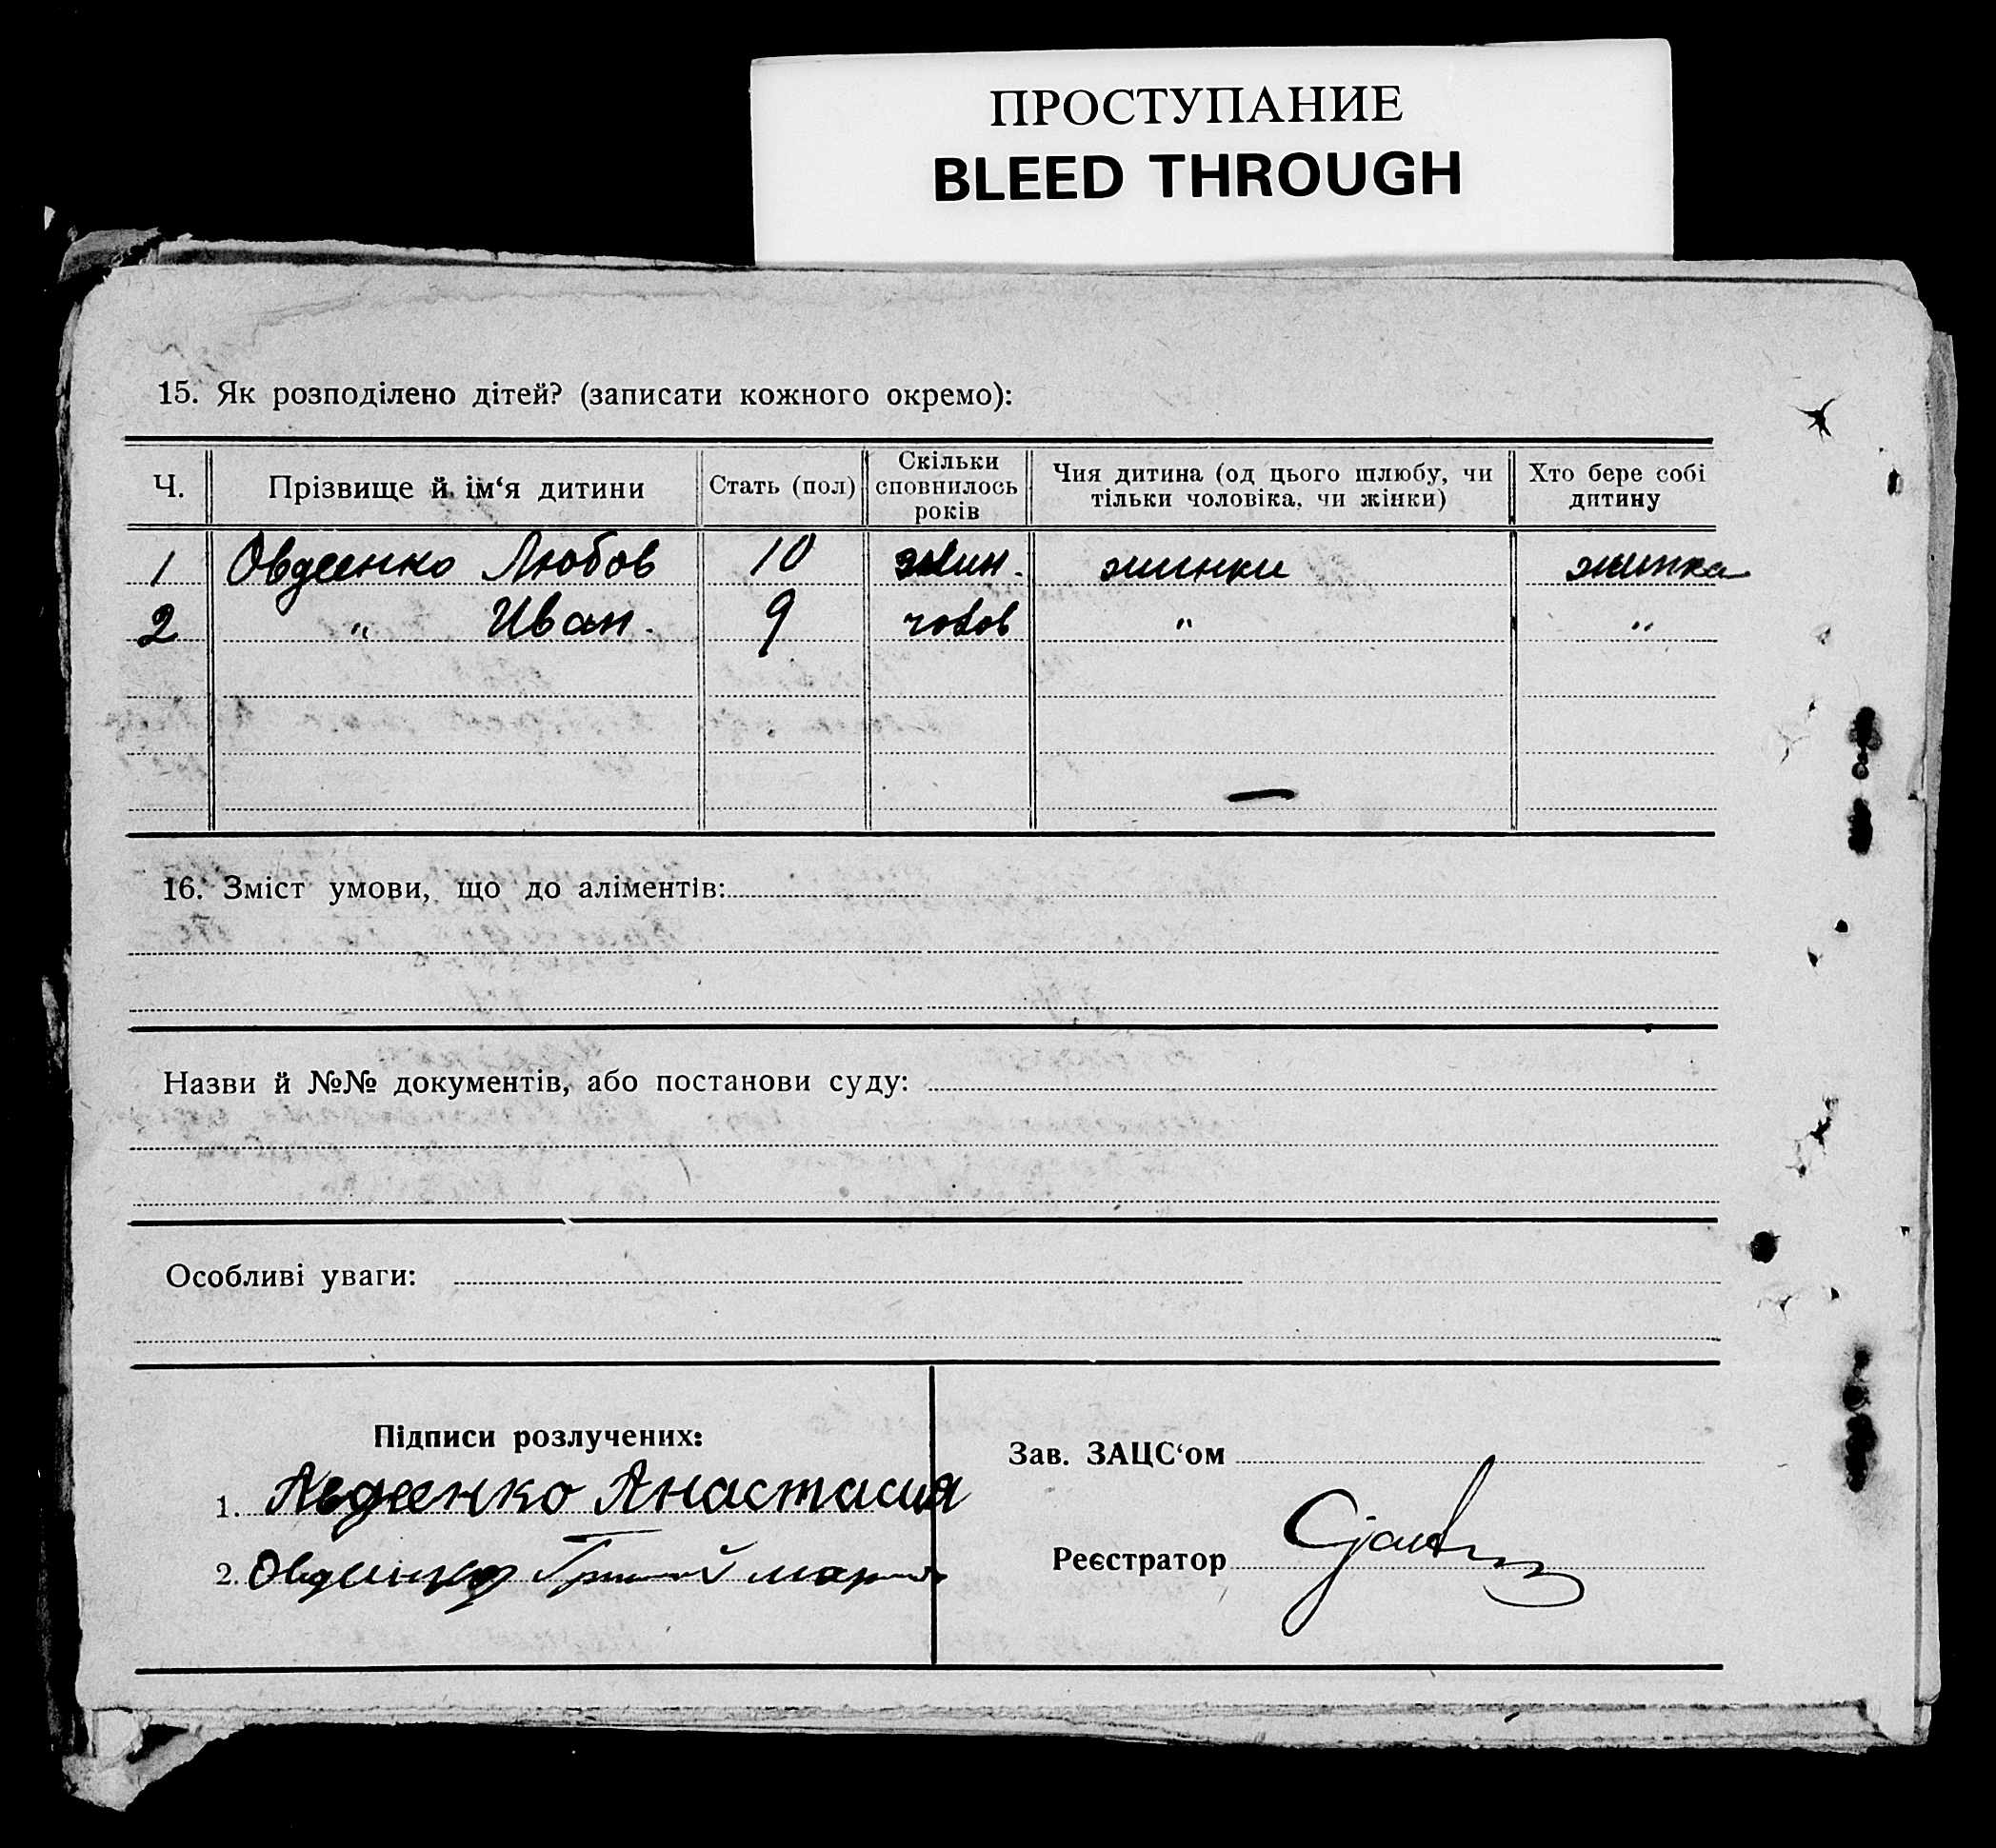 ПРОСТУПАНИЕ
BLEED THROUGH
15. Як розподілено дітей? (записати кожного окремо):
Ч. Прізвище й ім‘я дитини Стать (пол) Скільки сповнилось років Чия дитина (од цього шлюбу, чи тільки чоловіка, чи жінки) Хто бере собі дитину
1 Овдеенко Любов 10 жин. жинки жинка
2 " Иван. 9 чолов " "
16. Зміст умови, що до аліментів:
Назви й №№ документів, або постанови суду:
Особливі уваги:
Підписи розлучених:
1. Авдеенко Анастасия
2.
Зав. ЗАЦС‘ом
Реєстратор